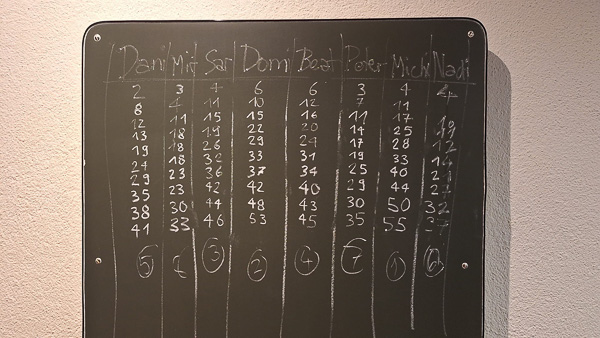 Dani Mit Sar Domi Beat Peter Michi Nadi
2 3 4 6 6 3 4 4
8 4 11 10 12 7 11
12 11 15 15 16 11 17
13 18 19 22 20 14 25
19 18 26 29 24 17 28 12
24 18 32 33 31 19 33
29 23 36 37 34 25 40
35 23 42 42 40 29 44
38 30 44 48 43 30 50
41 33 46 53 45 35 55
5 3 2 4 7 1 6